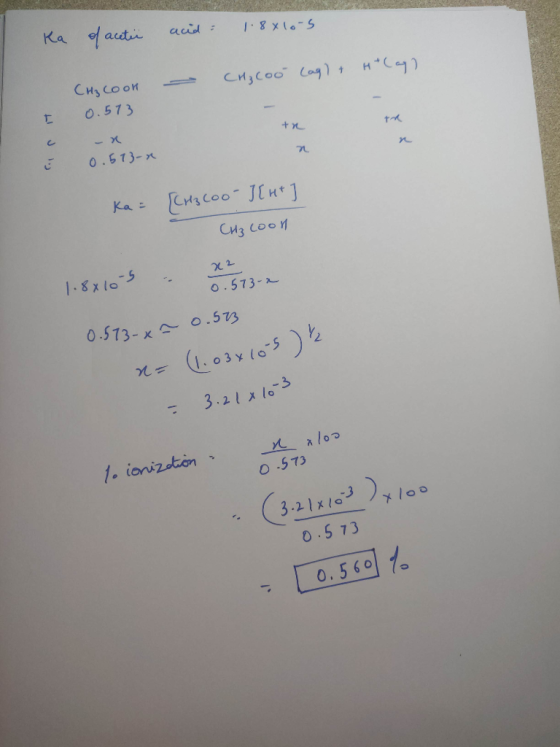 Ka of acetic acid = 1.8x10-5
CH3COOH ⇌ CH3COO- (aq) + H+ (aq)
I 0.573 - -
C - x +x +x
E 0.573-x x x
Ka = [CH3COO-][H+]
CH3COOH
1.8x10-5 = x2
0.573-x
0.573-x ≃ 0.573
x = (1.03x10-5)1/2
= 3.21x10-3
% ionization = x x100
0.573
= (3.21x10-3) x100
0.573
= 0.560 %